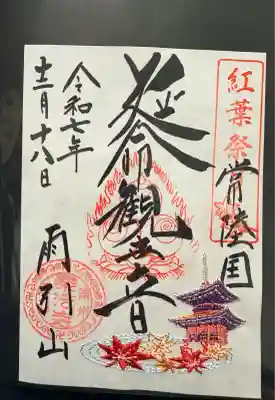 紅葉祭
常陸国
延命観世音
令和七年
十二月十八日
雨引山